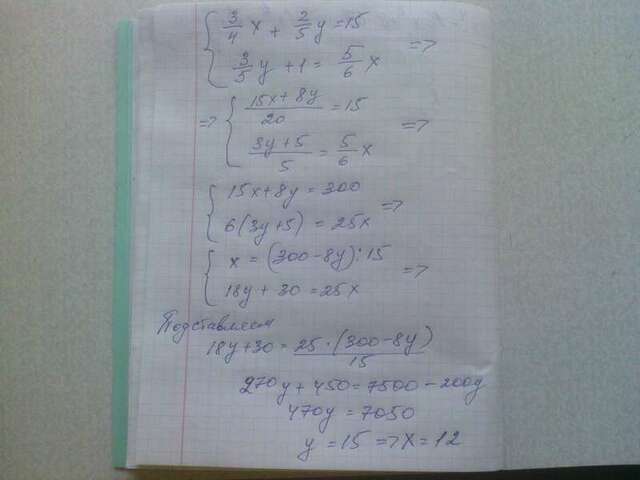 { 3/4 x + 2/5 y = 15
3/5 y + 1 = 5/6 x =>
=> { (15x + 8y)/20 = 15
(3y + 5)/5 = 5/6 x =>
{ 15x + 8y = 300
6(3y + 5) = 25x =>
{ x = (300 - 8y) : 15
18y + 30 = 25x =>
Подставляем
18y + 30 = 25 · (300 - 8y)/15
270y + 450 = 7500 - 200y
470y = 7050
y = 15 => x = 12